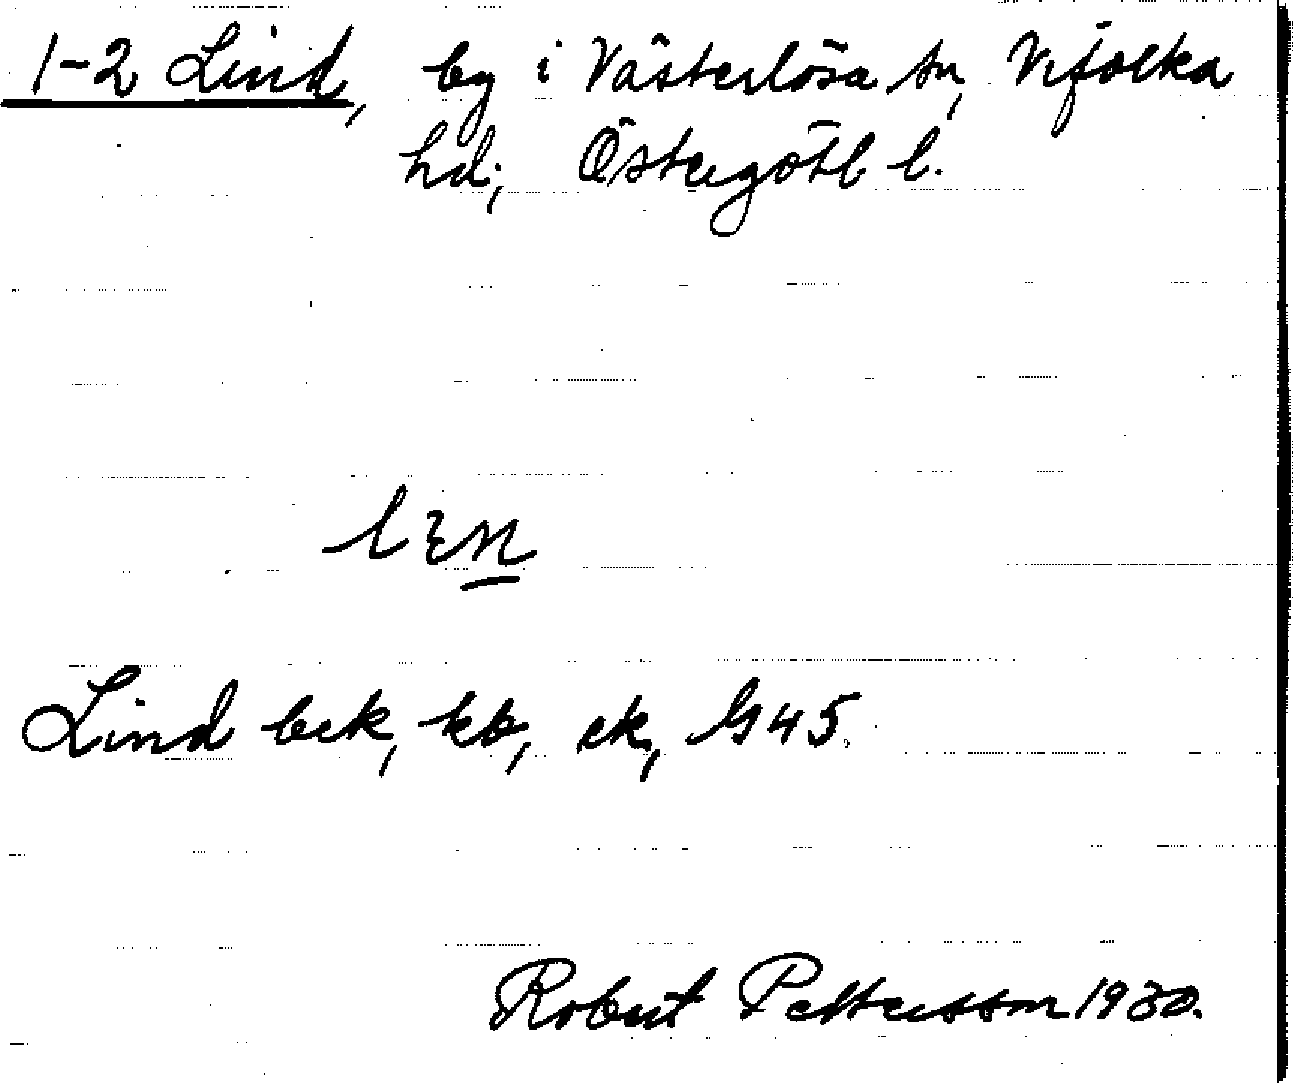 1-2 Lind, by i Västerlösa sn, Vifolka
hd, Östergötl l.
lɛn
Lind bek, kb, ek, G 45.
Robert Pettersson 1930.